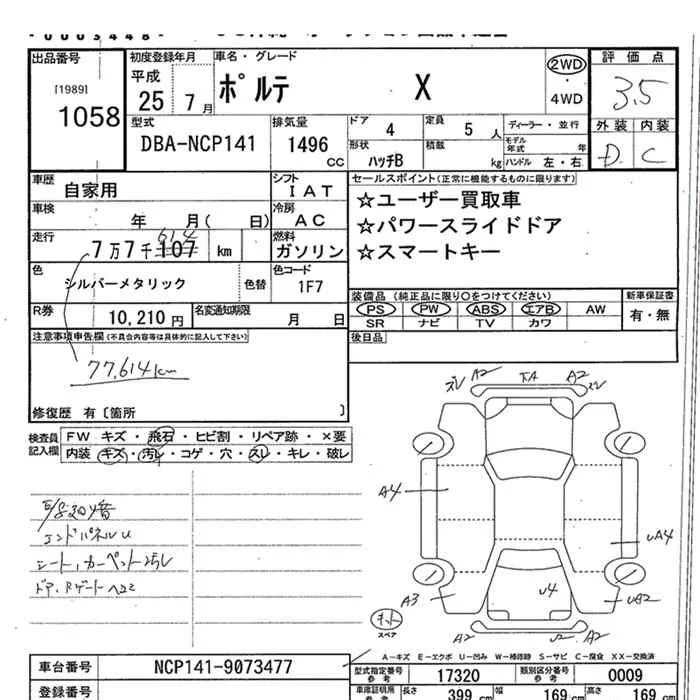 00003448
出品番号 初度登録年月 車名・グレード 評価点
[1989] 1058
平成 25 7月
ポルテ X
2WD ・ 4WD
3.5
型式 DBA-NCP141
排気量 1496 CC
ドア 4 定員 5 人 ディーラー・並行
形状 ハッチB 積載 kg モデル年式 年 ハンドル 左・右
外装 内装
D C
車歴 自家用 シフト IAT
車検 年 月( 日) 冷房 AC
走行 7万7千107 km 燃料 ガソリン
614
色 シルバーメタリック 色替 色コード 1F7
R券 10,210円 名変通知期限 月 日
セールスポイント(正常に機能するものに限ります)
☆ユーザー買取車
☆パワースライドドア
☆スマートキー
装備品(純正品に限り○をつけてください) 新車保証書
PS PW ABS エアB AW 有・無
SR ナビ TV カワ
後日品
注意事項申告欄(不具合内容等は具体的に記入して下さい)
77,614km
修復歴 有〔箇所 〕
検査員記入欄 FW キズ・飛石・ヒビ割・リペア跡・×要
内装 キズ・汚レ・コゲ・穴・スレ・キレ・破レ
エンドパネルU
シート,カーペット
ズレ A2 A2 ズレ
A4
UA4
A3 U4 UA2
キット
スペア
A2 U2 A2
A-キズ E-エクボ U-凹み W-補修跡 S-サビ C-腐食 XX-交換済
車台番号 NCP141-9073477
型式指定番号 参考 17320 類別区分番号 参考 0009
登録番号
車庫証明用 参考 長さ 399 cm 幅 169 cm 高 169 cm